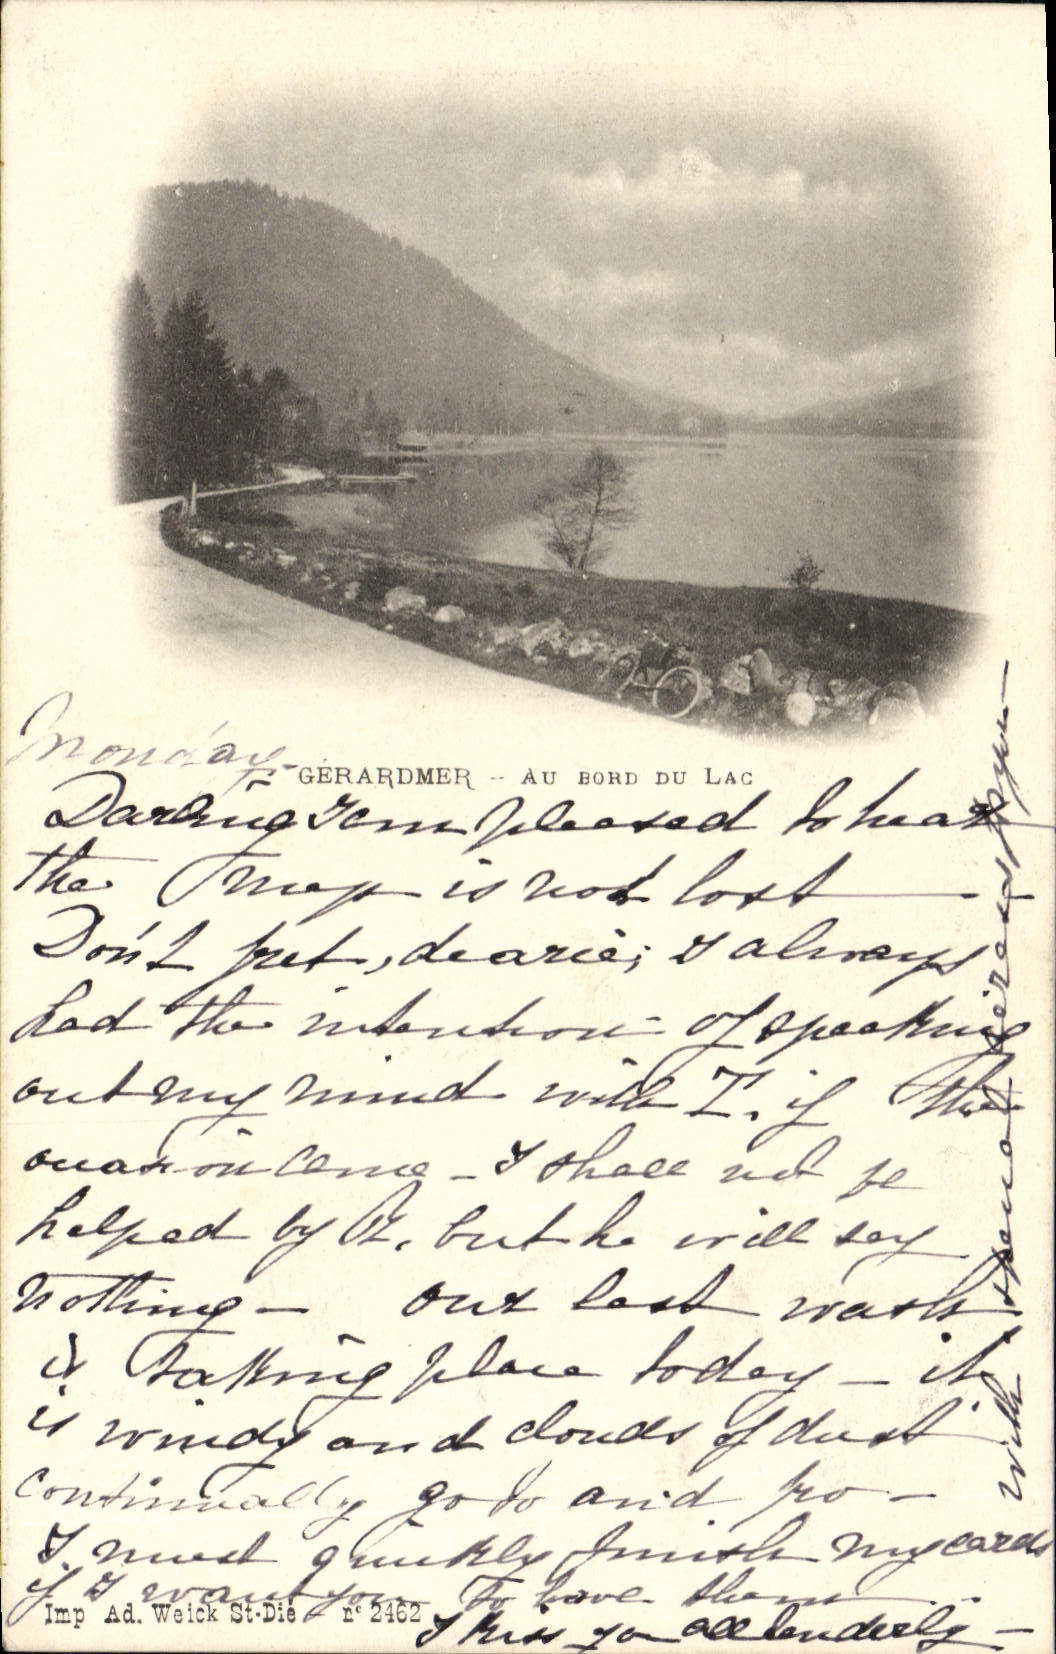 Monday
GÉRARDMER - AU BORD DU LAC
Darling I am pleased to hear
the map is not lost —
Don't fret, dearie; I always
had the intention of speaking
out my mind with T. if the
occasion came - I shall not be
helped by A. but he will say
nothing — our last wash
is taking place today - it
is windy and clouds of dust
continually go to and fro -
I must quickly finish my cards
if I want you to have them
Imp Ad. Weick St-Dié - n° 2462
I kiss you all tenderly -
with